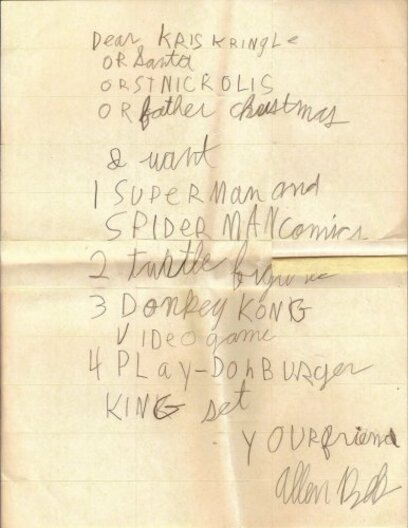 Dear KRIS KRINGLe
OR Santa
OR ST NICKOLIS
OR father christmas
I want
1 SUPERMan and
SPIDER MAN comics
2 turtle
3 DonKey KONG
VIDeo game
4 PLay-DoH BURger
KING set
YOUR friend
Allen